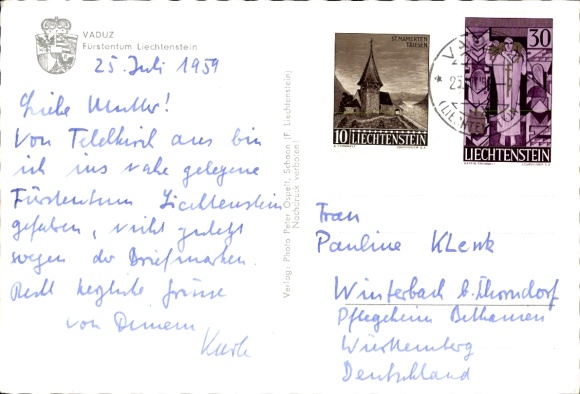 VADUZ
Fürstentum Liechtenstein
25. Juli 1959
Liebe Mutter!
Von Feldkirch aus bin
ich ins nahe gelegene
Fürstentum Liechtenstein
gefahren, nicht zuletzt
wegen der Briefmarken.
Recht herzliche Grüsse
von Deinem
Verlag: Photo Peter Ospelt, Schaan (F. Liechtenstein)
Nachdruck verboten
ST. MAMERTEN
TRIESEN
10 LIECHTENSTEIN
30
LIECHTENSTEIN
Frau
Pauline Klenk
Winterbach b. Schorndorf
Pflegeheim Bethanien
Württemberg
Deutschland